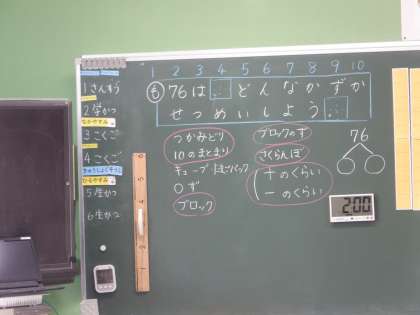 1 2 3 4 5 6 7 8 9 10
も 76は どんなかずか
せつめいしよう
1 さんすう
2 せいかつ
なかやすみ
3 こくご
4 こくご
ひるやすみ
5 せいかつ
6 せいかつ
つかみどり
10のまとまり
キューブ
○ず
ブロック
ブロックのず
さくらんぼ
十のくらい
一のくらい
76
2:00